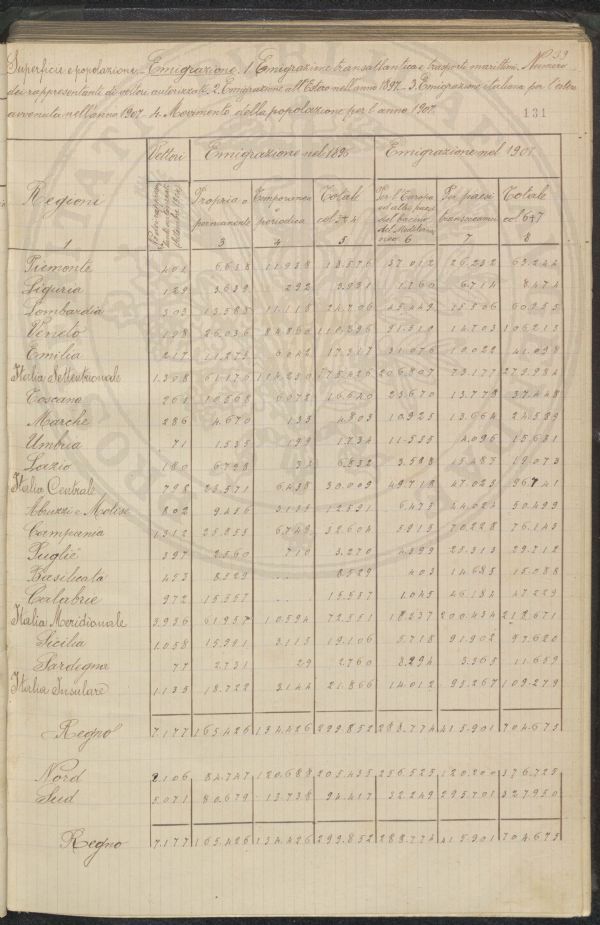 33
Superficie e popolazione. Emigrazione. 1. Emigrazione transatlantica e trasporti marittimi. Numero
dei rappresentanti di vettori autorizzati. 2. Emigrazione all'Estero nell'anno 1897. 3. Emigrazione italiana per l'estero
avvenuta nell'anno 1907. 4. Movimento della popolazione per l'anno 1907.
131
Vettori Emigrazione nel 1896 Emigrazione nel 1907
Regioni Propria o permanente Temporanea o periodica Totale col 3+4 Per l'Europa ed altri paesi del bacino del Mediterraneo Per paesi transoceanici Totale col 6+7
1 3 4 5 6 7 8
Piemonte 402 6.638 11.938 18.576 37.012 26.232 63.244
Liguria 129 3.639 292 3.931 1.760 6.714 8.474
Lombardia 503 13.588 11.118 24.706 45.449 15.506 60.955
Veneto 198 26.036 84.860 110.896 91.510 14.703 106.213
Emilia 217 11.275 6.042 17.317 31.076 10.022 41.098
Italia Settentrionale 61.176 114.250 175.426 206.807 73.177
Toscana 261 10.568 6.072 16.640 23.670 13.778 37.448
Marche 286 4.670 133 4803 10.925 13.664 24.589
Umbria 71 1.535 199 1734 11.535 4.096 15.631
Lazio 180 6798 6.832 3.588 15.485 19.073
Italia Centrale 798 23.571 6.438 30.009 49.718 47.023 96.741
Abruzzi e Molise 802 9.456 3.135 12.591 6.475 24.024 50.499
Campania 1.312 25.855 6.749 32.604 5915 70.228 76.143
Puglie 397 2.560 710 3.270 4.399 25.313 29.712
Basilicata 453 8.529 ... 8.529 403 14.685 15.088
Calabrie 972 15.557 ... 15.557 1.045 46.184 47.229
Italia Meridionale 3.936 61.957 10.594 72.551 18.237 200.434 218.671
Sicilia 1.058 15.991 3.115 19.106 5.718 91.902 97.620
Sardegna 77 2.731 29 2.760 8.294 3.365 11.659
Italia Insulare 1.135 18.722 3.144 21.866 14.012 95.267 109.279
Regno 7.177 165.426 134.426 299.852 288.774 415.901 704.675
Nord 2.106 84.747 120.688 205.435 256.525 120.200 376.725
Sud 5.071 80.679 13.738 94.417 32.249 295.701 327.950
Regno 7.177 165.426 134.426 299.852 288.774 415.901 704.675